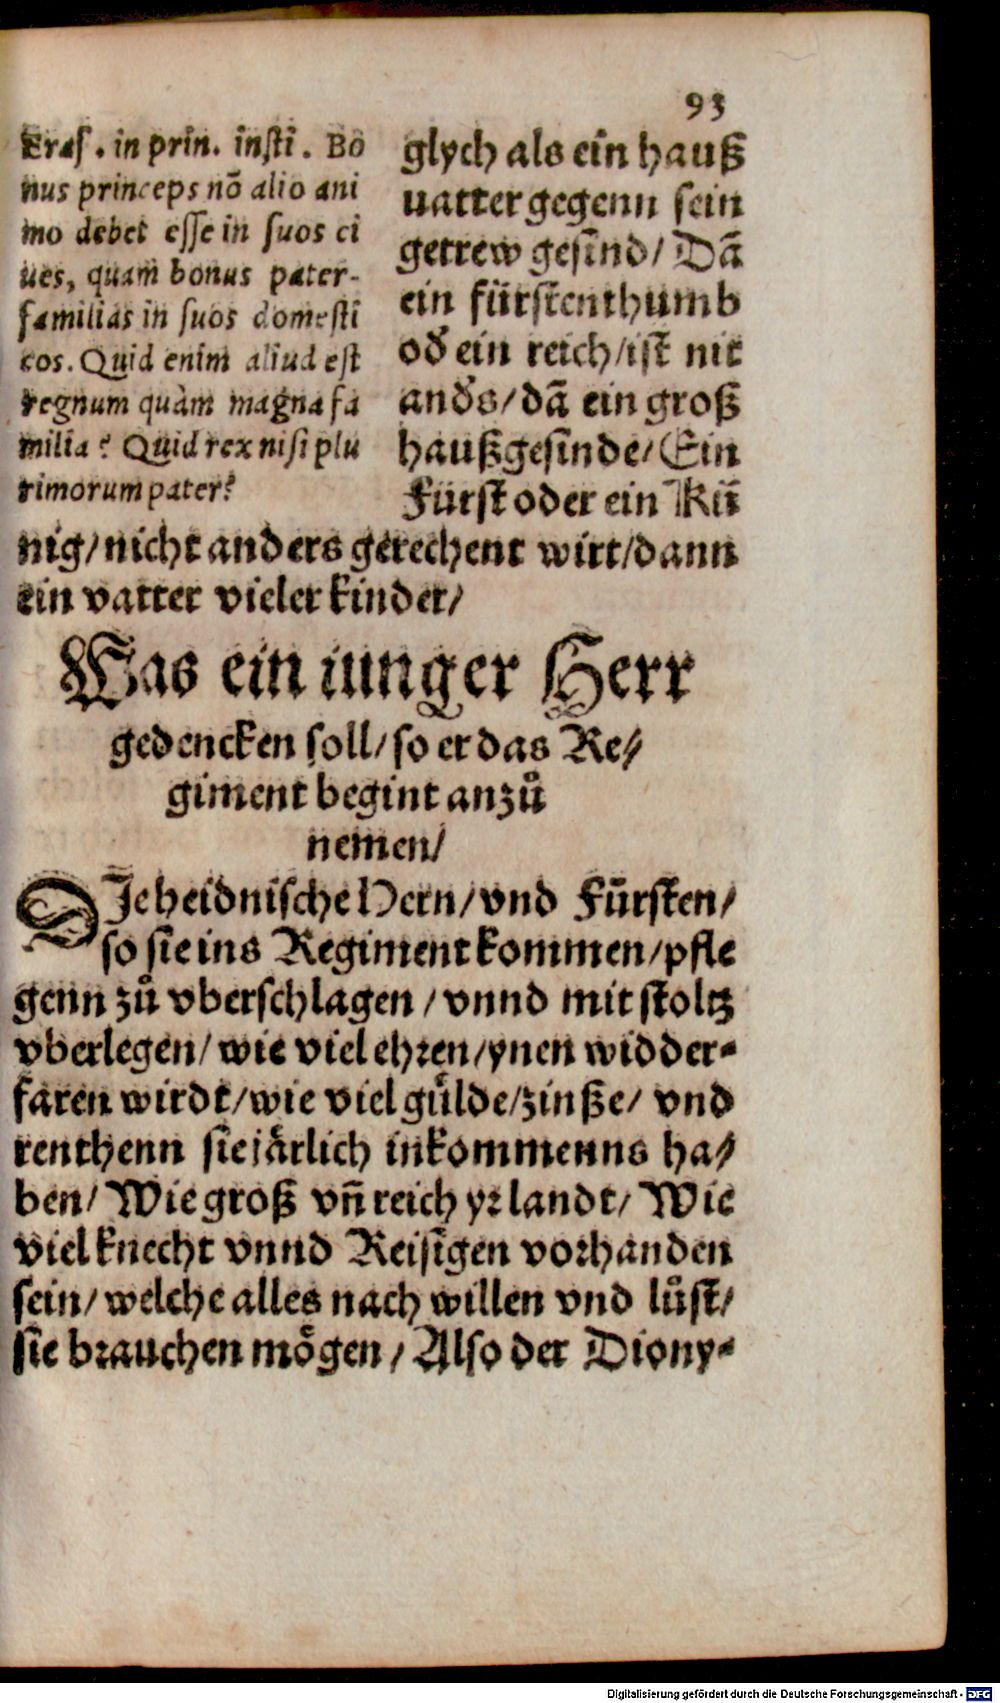 93
Eras. in prin. insti. Bo
nus princeps nō alio ani
mo debet esse in suos ci
ues, quam bonus pater-
familias in suos domesti
cos. Quid enim aliud est
regnum quàm magna fa
milia? Quid rex nisi plu
rimorum pater?
glych als ein hauß
uatter gegenn sein
getrew gesind/ Dā
ein fürstenthumb
od̕ ein reich/ist nit
and̕s/dā ein groß
haußgesinde/ Ein
Fürst oder ein Kǖ
nig/nicht anders gerechent wirt/dann
ein vatter vieler kinder/
Was ein iunger Herr
gedencken soll/so er das Re⸗
giment begint anzů
nemen/
DJe heidnische Hern/vnd Fürsten/
so sie ins Regiment kommen/pfle
genn zů vberschlagen/vnnd mit stoltz
vberlegen/wie viel ehren/ynen widder⸗
faren wirdt/wie viel gülde/zinße/ vnd
renthenn sie järlich inkommenns ha⸗
ben/ Wie groß vn̄ reich yr landt/ Wie
viel knecht vnnd Reisigen vorhanden
sein/welche alles nach willen vnd lůst/
sie brauchen mögen/Also der Diony⸗
Digitalisierung gefördert durch die Deutsche Forschungsgemeinschaft - DFG